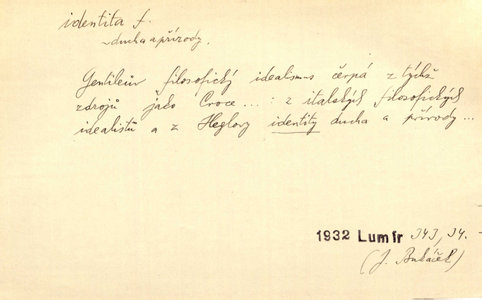 identita f.
~ ducha a přírody.
Gentileův filosofický idealismus čerpá z týchž
zdrojů jako Croce...: z italských filosofických
idealistů a z Heglovy identity ducha a přírody...
1932 Lumír 343, 34.
(J.